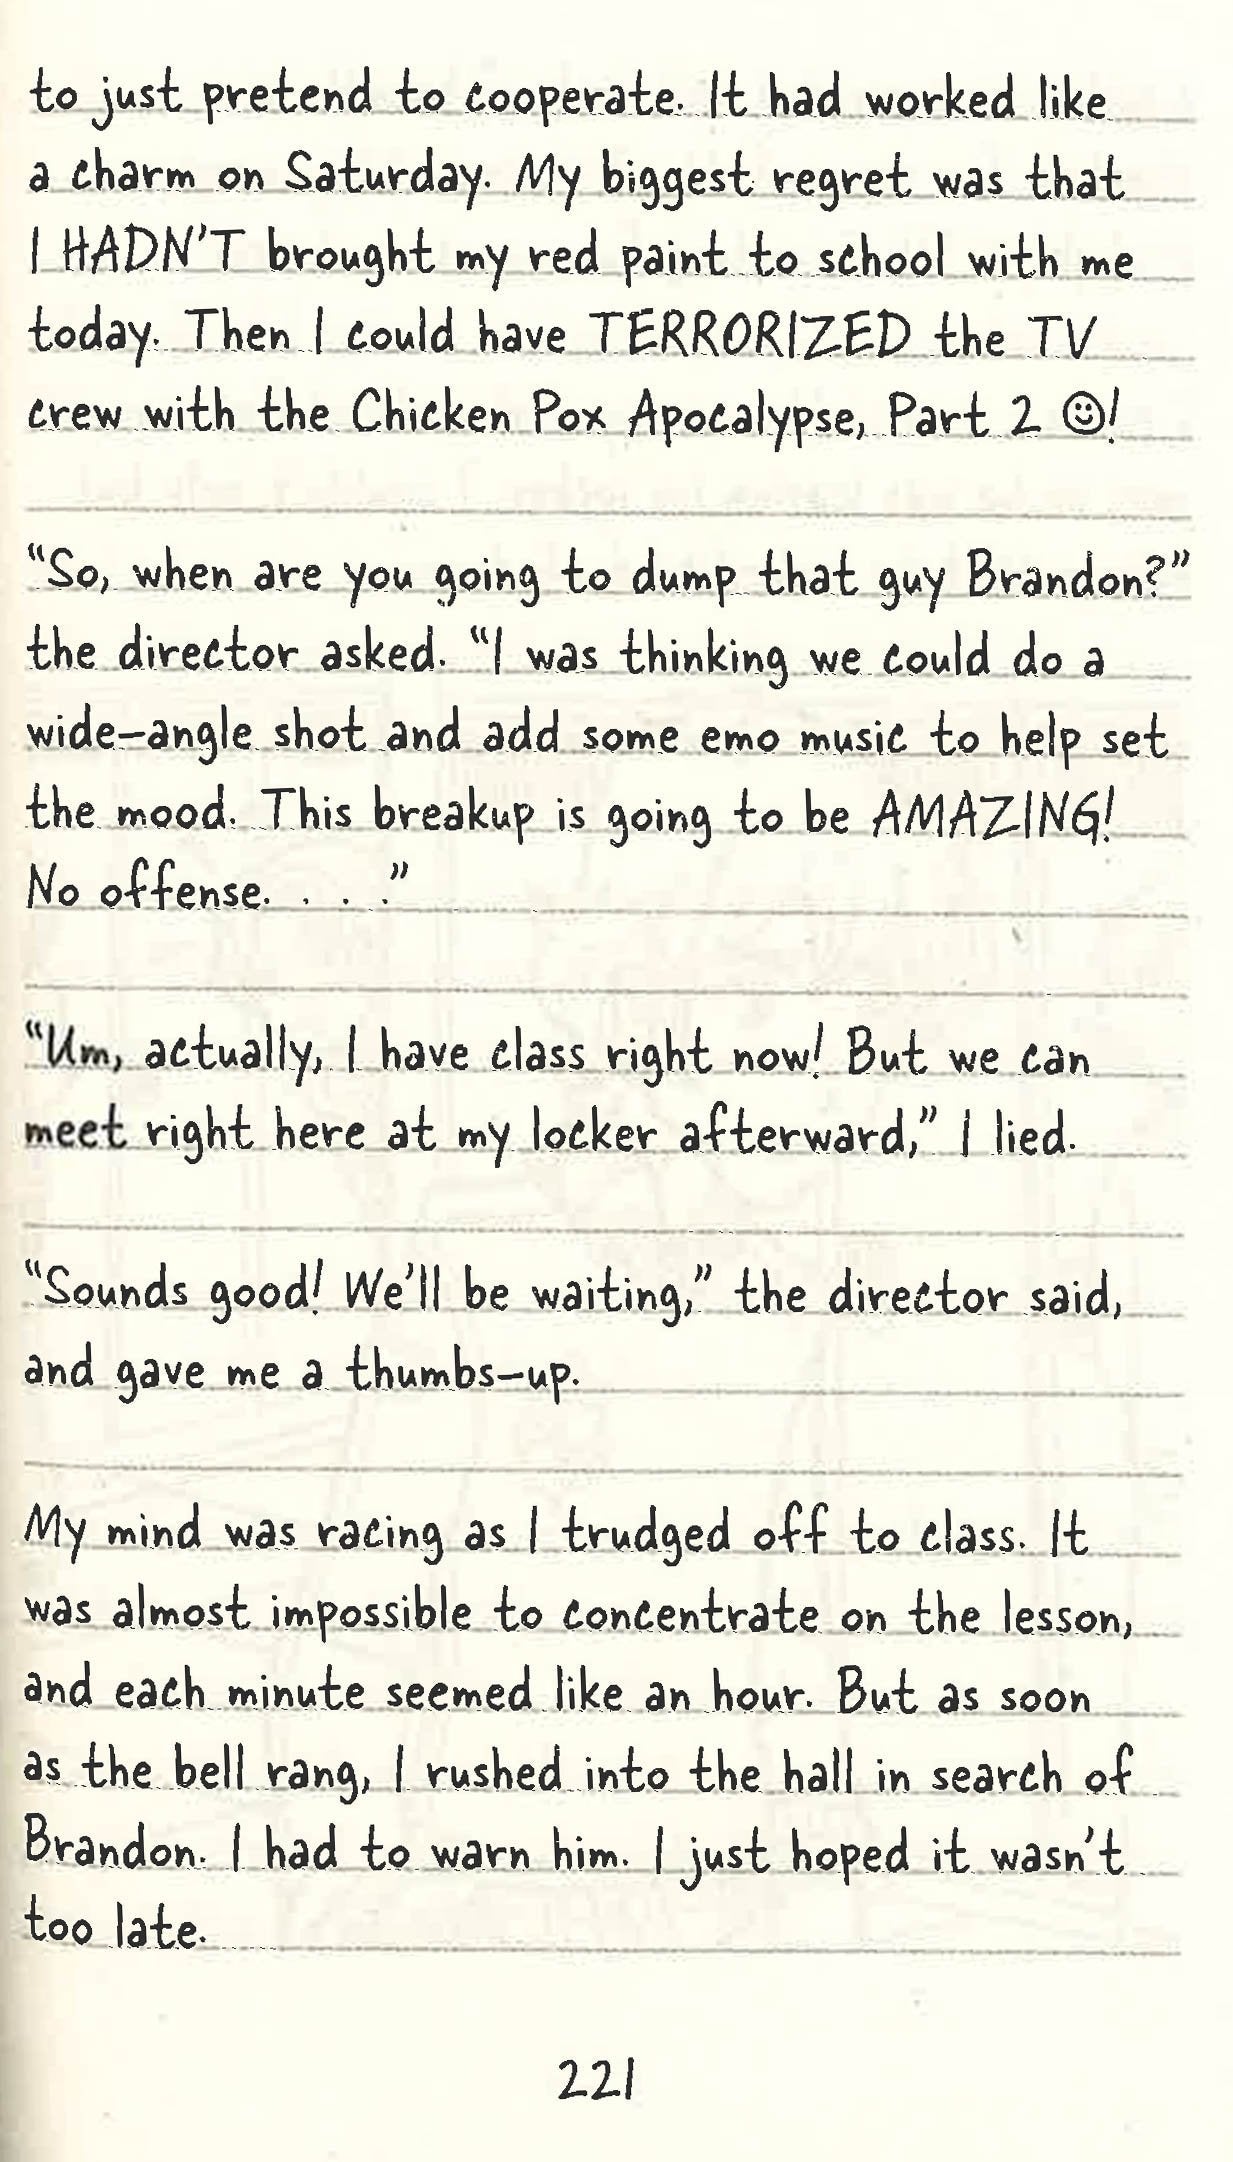 to just pretend to cooperate. It had worked like
a charm on Saturday. My biggest regret was that
I HADN'T brought my red paint to school with me
today. Then I could have TERRORIZED the TV
crew with the Chicken Pox Apocalypse, Part 2 ☺!
“So, when are you going to dump that guy Brandon?”
the director asked. “I was thinking we could do a
wide–angle shot and add some emo music to help set
the mood. This breakup is going to be AMAZING!
No offense. . . .”
“Um, actually, I have class right now! But we can
meet right here at my locker afterward,” I lied.
“Sounds good! We’ll be waiting,” the director said,
and gave me a thumbs–up.
My mind was racing as I trudged off to class. It
was almost impossible to concentrate on the lesson,
and each minute seemed like an hour. But as soon
as the bell rang, I rushed into the hall in search of
Brandon. I had to warn him. I just hoped it wasn’t
too late.
221